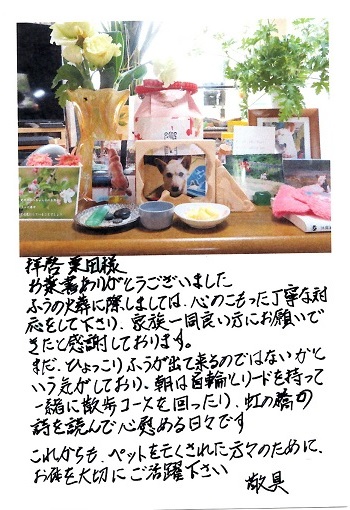 拝啓 栗田様
お葉書ありがとうございました
ふうの火葬に際しましては、心のこもった丁寧な対
応をして下さり、家族一同良い方にお願いで
きたと感謝しております。
まだ、ひょっこりふうが出て来るのではないかと
いう気がしており、朝は首輪とリードを持って
一緒に散歩コースを回ったり、虹の橋の
詩を読んで心慰める日々です
これからも、ペットを亡くされた方々のために、
お体を大切にご活躍下さい
敬具